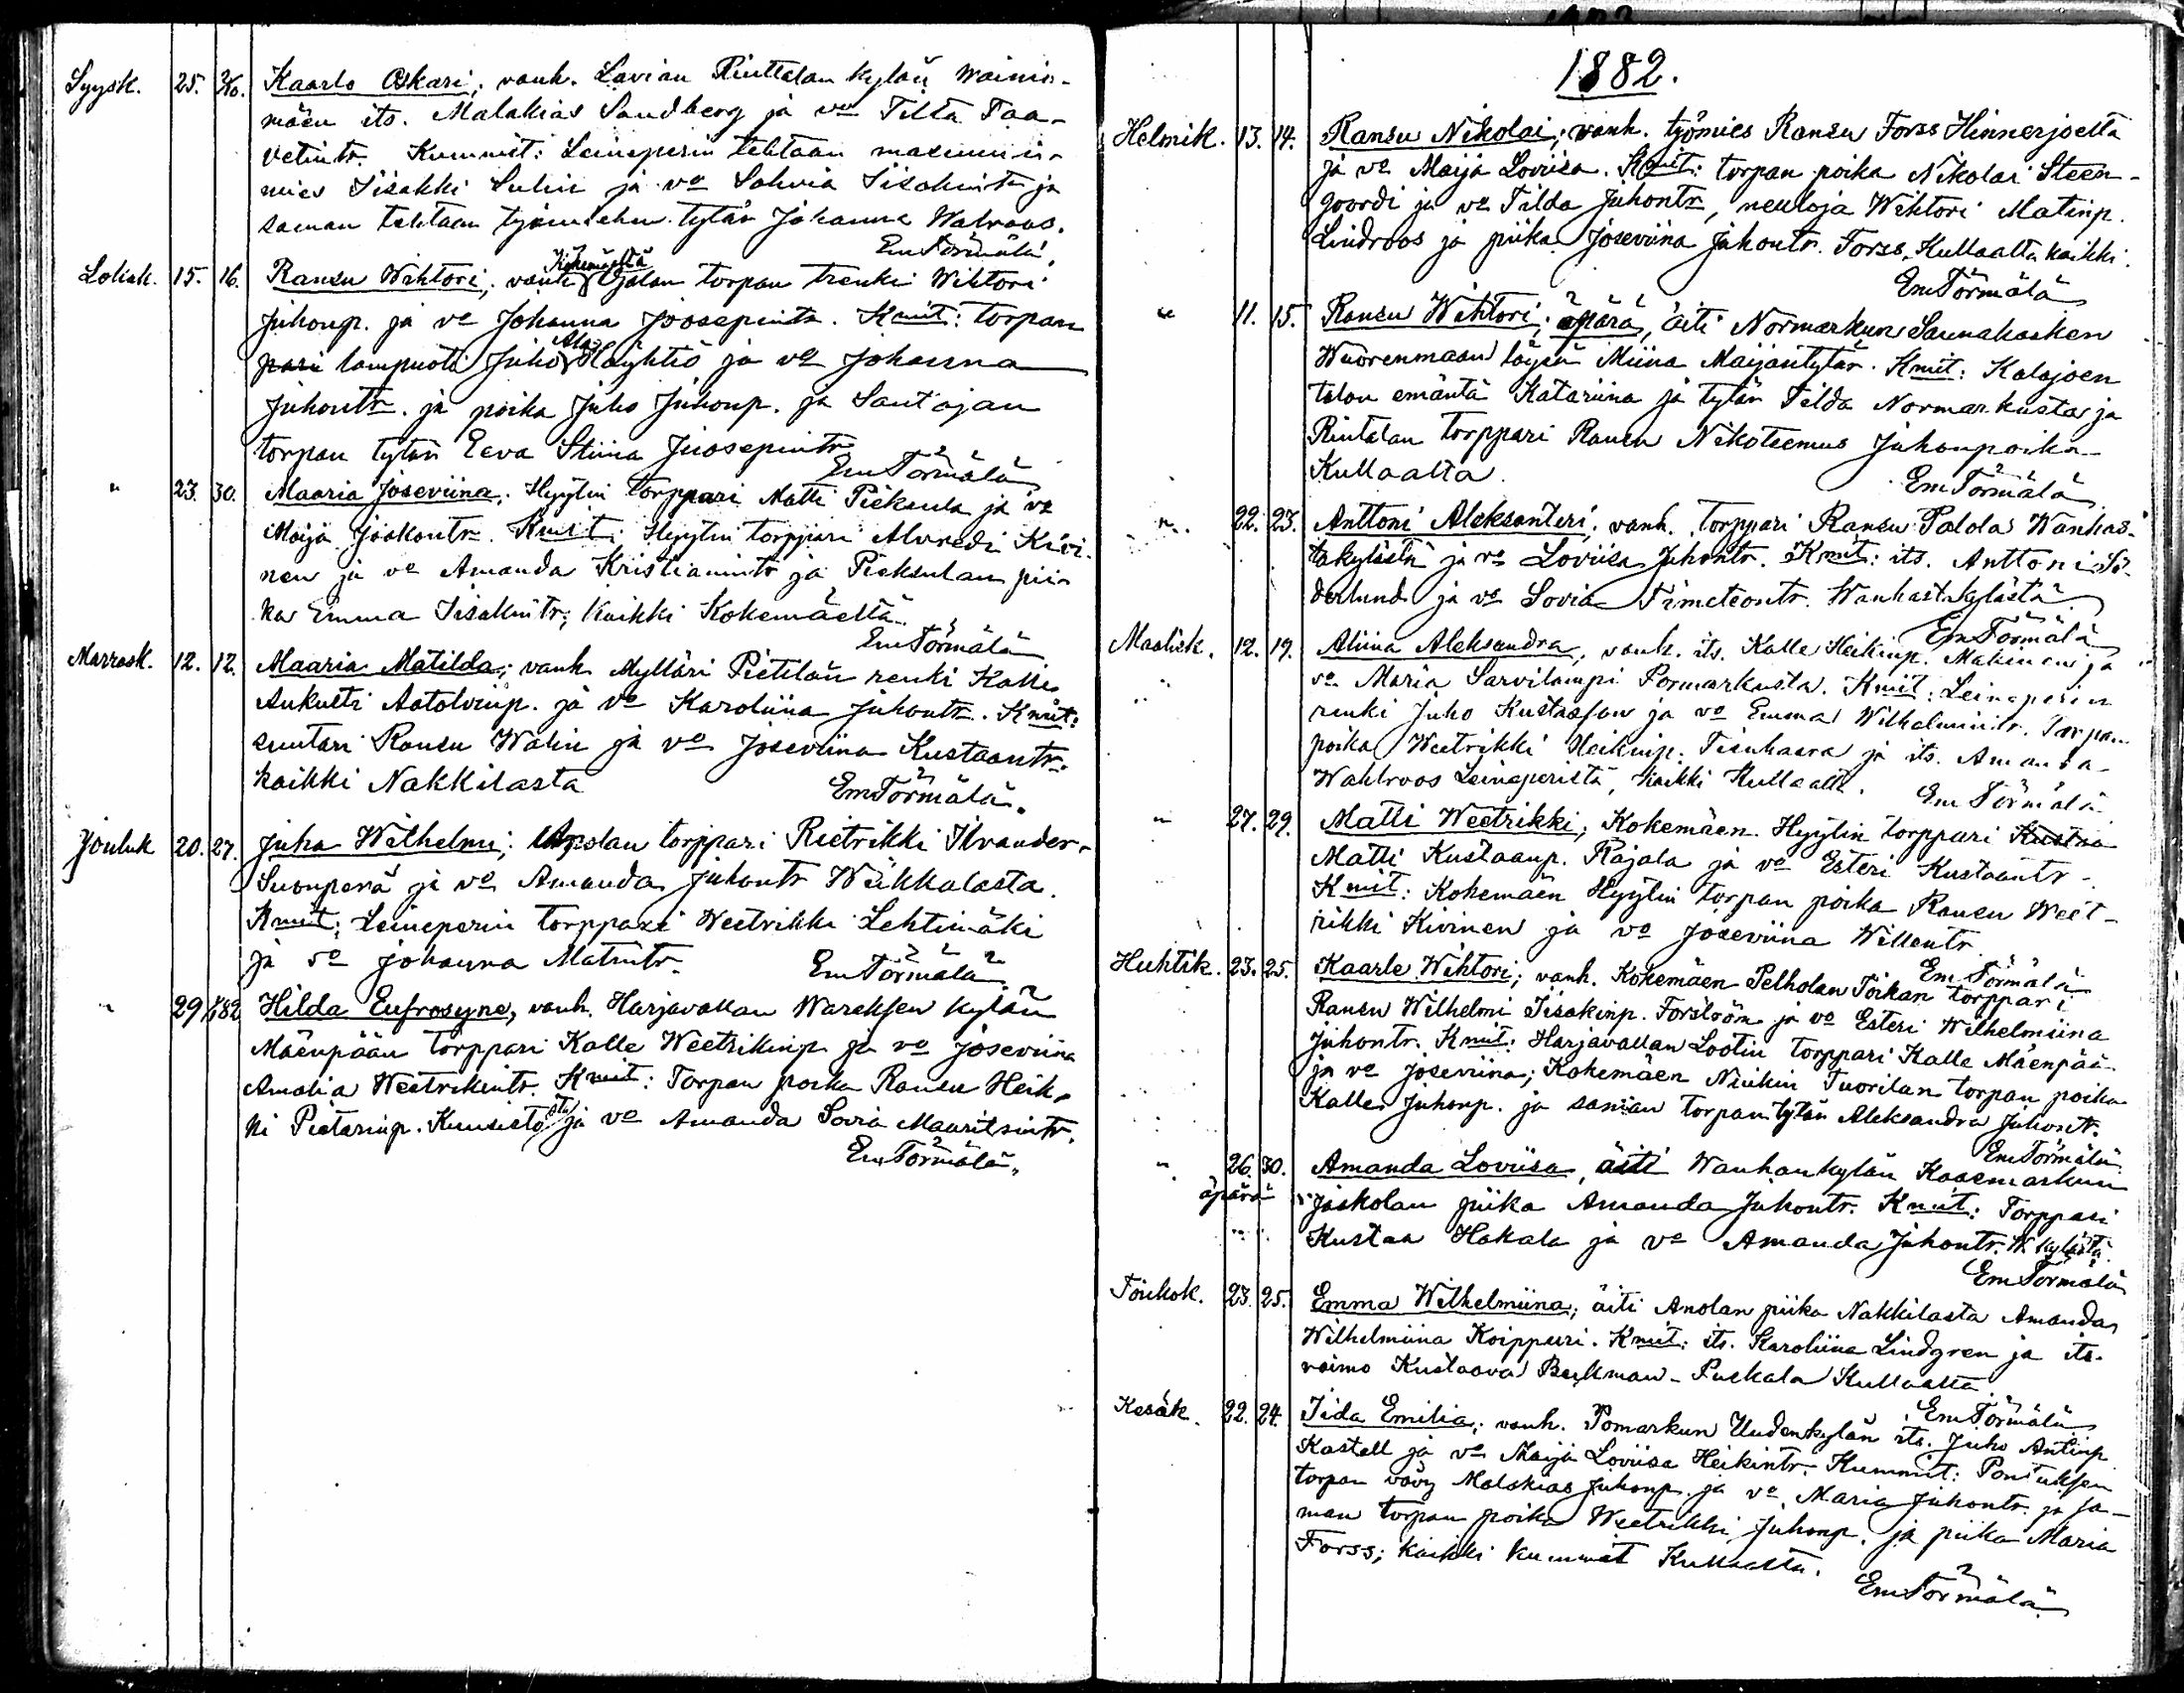 Syysk. 25. 2/10. Kaarlo Oskari; vanh. Lavian Riuttalan kylän Wainio-
mäen its. Malakias Sandberg ja vo Tilta Taa-
vetintr. Kummit: Leineperin tehtaan
mies Iisakki Sulin ja vo Iisakintr ja
saman tehtaan työmiehen tytär Johanna Walroos.
EmTörmälä.
Lokak. 15. 16. Ransu Wihtori; vanh. Kokemäeltä Ojalan torpan trenki Wihtori
Juhonp. ja vo Johanna Joosepintr. Kmit: torpan
pari lampuoti Juho Ala Häyhtiö ja vo Johanna
Juhontr. ja poika Juho Juhonp. ja Santojan
torpan tytär Eeva Stiina Joosepintr
EmTörmälä
" 23. 30. Maaria Joseviina; Hyytin torppari Matti Pieksula ja vo
Maija Jaakontr. Kmit: Hyytin torppari Alvredi Kivi-
nen ja vo Amanda Kristianintr ja Pieksulan pii-
ka Emma Iisakintr; kaikki Kokemäeltä.
EmTörmälä
Marrask. 12. 12. Maaria Matilda; vanh. Mylläri Pietilän renki Kalle
Aukusti Aatolvinp. ja vo Karoliina Juhontr. Kmit:
suutari Ransu Walin ja vo Joseviina Kustaantr.
kaikki Nakkilasta
EmTörmälä.
Jouluk 20. 27. Juha Wilhelmi; Anolan torppari Rietrikki Ilvander-
Suonperä ja vo Amanda Juhontr Wiikkalasta.
Kmit; Leineperin torppari Weetrikki Lehtimäki
ja vo Johanna Matintr.
EmTörmälä
" 29 1/1 82 Hilda Eufrosyne, vanh. Harjavallan Wareksen kylän
Mäenpään torppari Kalle Weetrikinp ja vo Joseviina
Amalia Weetrikintr. Kmit: Torpan poika Ransu Heik-
ki Pietarinp. Kuusisto sta ja vo Amanda Sovia Mauritsintr.
EmTörmälä.
1882.
Helmik. 13. 14. Ransu Nikolai; vanh. työmies Ransu Forss Hinnerjoelta
ja vo Maija Loviisa. Kmit: torpan poika Nikolai Steen-
goordi ja vo Tilda Juhontr, neuloja Wihtori Matinp.
Lindroos ja piika Joseviina Juhontr. Forss, Kullaalta kaikki.
EmTörmälä
" 11. 15. Ransu Wihtori; äpärä, äiti Normarkun Saunakosken
Wuorenmaan löysä Miina Maijantytär. Kmit: Kalajoen
talon emäntä Katariina ja tytär Tilda Normarkusta ja
Rintalan torppari Ransu Nikoteemus Juhonpoika
Kullaalta.
EmTörmälä
" 22. 23. Anttoni Aleksanteri; vanh. torppari Ransu Palola Wanhas-
takylästä ja vo Loviisa Juhontr. Kmit: its. Anttoni Sö-
derlund ja vo Sovia Timoteontr. Wanhastakylästä
EmTörmälä
Maalisk. 12. 19. Aliina Aleksandra, vanh. its. Kalle Heikinp. Mäkinen ja
vo Maria Sarvilampi Pormarkusta. Kmit: Leineperin
renki Juho Kustasson ja vo Emma Wilhelmiintr. Torpan
poika Weetrikki Heikinp. Tienhaara ja its. Amanda
Wahlroos Leineperistä, kaikki Kullaalta.
EmTörmälä
" 27. 29. Matti Weetrikki; Kokemäen Hyytin torppari Kustaa
Matti Kustaanp. Rajala ja vo Esteri Kustaantr.
Kmit: Kokemäen Hyytin torpan poika Ransu Weet-
rikki Kivinen ja vo Joseviina Willentr
EmTörmälä
Huhtik. 23. 25. Kaarle Wihtori; vanh. Kokemäen Pelholan Toikan torppari
Ransu Wilhelmi Iisakinp. Forslööm ja vo Esteri Wilhelmiina
Juhontr. Kmit: Harjavallan Lootin torppari Kalle Mäenpää
ja vo Joseviina; Kokemäen Niukin Tuorilan torpan poika
Kalle Juhonp. ja saman torpan tytär Aleksandra Juhont.
EmTörmälä.
" 26. 30. Amanda Loviisa, äiti Wanhankylän Kaasmarkun
äpärä Jaskolan piika Amanda Juhontr. Kmit: Torppari
Kustaa Hakala ja vo Amanda Juhontr. W. kylästä
EmTörmälä
Toukok. 23. 25. Emma Wilhelmiina; äiti Anolan piika Nakkilasta Amanda
Wilhelmiina Koippuri. Kmit: its. Karoliina Lindgren ja its.
vaimo Kustaava Bulkman-Puskala Kullaalta.
EmTörmälä
Kesäk. 22. 24. Iida Emilia; vanh. Pomarkun Uudenkylän its. Juho Antinp
Kastell ja vo Maija Loviisa Heikintr. Kummit: Pontuksen
torpan vävy Malakias Juhonp. ja vo Maria Juhontr. ja sa-
man torpan poika Weetrikki Juhonp. ja piika Maria
Forss; kaikki kummit Kullaalta.
EmTörmälä